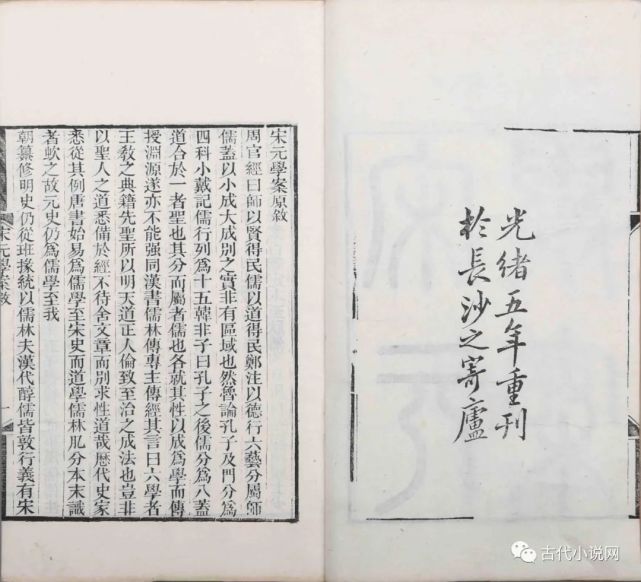 光緒五年重刊
於長沙之寄廬
宋元學案原敘
周官經曰師以賢得民儒以道得民鄭注以德行六藝分屬師
儒蓋以小成大成別之實非有區域也然魯論孔子及門分為
四科小戴記儒行列為十五韓非子曰孔子之後儒分為八蓋
道合於一者聖也其分而屬者儒也各就其性以成為學而傳
授淵源遂亦不能强同漢書儒林傳專主傳經其言曰六學者
王敎之典籍先聖所以明天道正人倫致至治之成法也豈非
以聖人之道悉備於經不待舍文章而別求性道哉歷代史家
悉從其例唐書始易為儒學至宋史而道學儒林分本末識
者蚍之故元史仍為儒學至我
朝纂修明史仍從班掾統以儒林夫漢代醇儒皆敦行義有宋
宋元學案敘
一
古代小说网